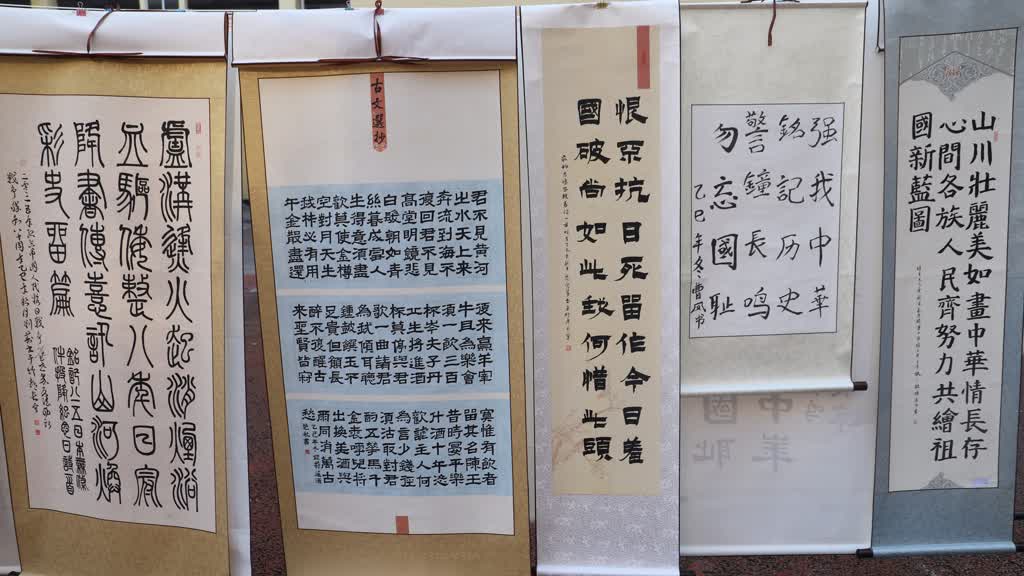 山川壯麗美如畫中華情長存
心間各族人民齊努力共繪祖
國新藍圖
强我中華
銘記历史
警鐘長鸣
勿忘國耻
乙巳年冬曹凤书
恨不抗日死留作今日羞
國破尚如此我何惜此頭
古文選抄
君不見黄河
之水天上来
奔流到海不
復回君不見
高堂明鏡悲
白髮朝如青
絲暮成雪人
生得意須盡
歡莫使金樽
空對月天生
我材必有用
千金散盡還
復来烹羊宰
牛且為樂會
須一飲三百
杯岑夫子丹
丘生將進酒
杯莫停與君
歌一曲請君
為我傾耳聽
鍾鼓饌玉不
足貴但願長
醉不復醒古
来聖賢皆寂
寞惟有飲者
留其名陳王
昔時宴平樂
斗酒十千恣
歡謔主人何
為言少錢徑
須沽取對君
酌五花馬千
金裘呼兒將
出換美酒與
爾同消萬古
愁
盧溝烽火起硝煙浴
血驅倭整八年日寇
降書傳喜訊山河煥
彩史留篇